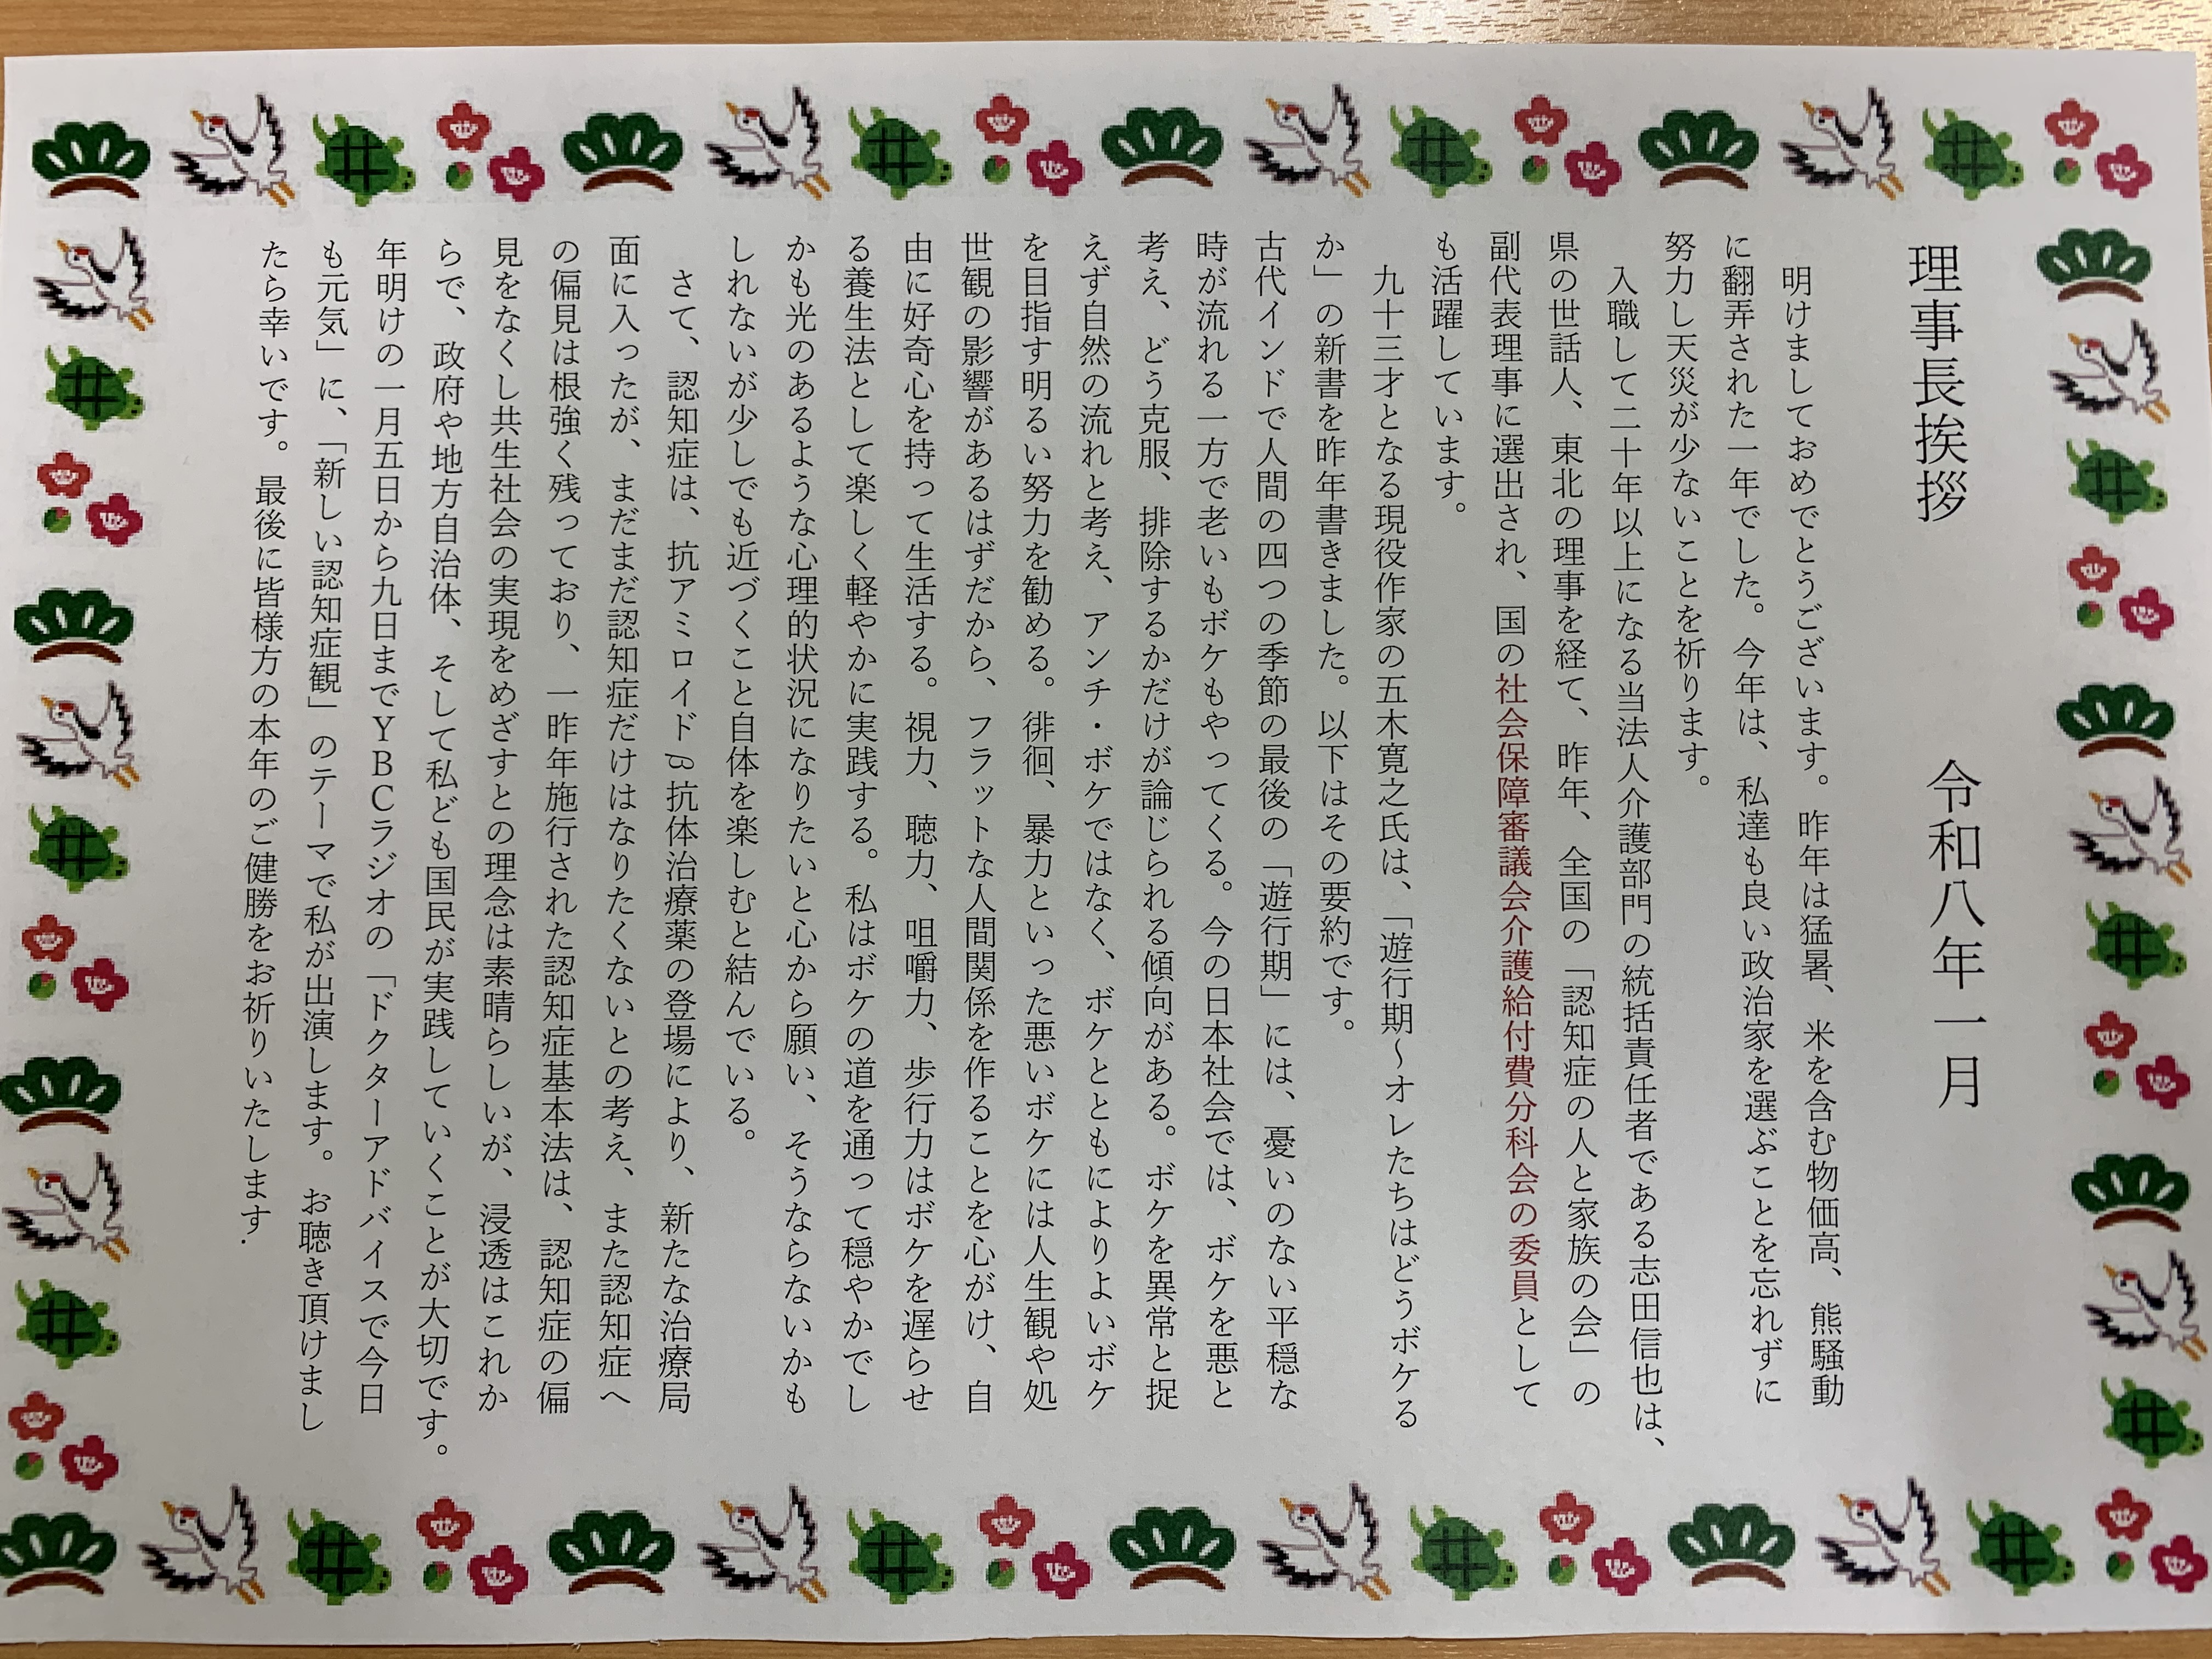 理事長挨拶　令和八年一月
明けましておめでとうございます。昨年は猛暑、米を含む物価高、熊騒動
に翻弄された一年でした。今年は、私達も良い政治家を選ぶことを忘れずに
努力し天災が少ないことを祈ります。
入職して二十年以上になる当法人介護部門の統括責任者である志田信也は、
県の世話人、東北の理事を経て、昨年、全国の「認知症の人と家族の会」の
副代表理事に選出され、国の社会保障審議会介護給付費分科会の委員として
も活躍しています。
九十三才となる現役作家の五木寛之氏は、「遊行期～オレたちはどうボケる
か」の新書を昨年書きました。以下はその要約です。
古代インドで人間の四つの季節の最後の「遊行期」には、憂いのない平穏な
時が流れる一方で老いもボケもやってくる。今の日本社会では、ボケを悪と
考え、どう克服、排除するかだけが論じられる傾向がある。ボケを異常と捉
えず自然の流れと考え、アンチ・ボケではなく、ボケとともによりよいボケ
を目指す明るい努力を勧める。徘徊、暴力といった悪いボケには人生観や処
世観の影響があるはずだから、フラットな人間関係を作ることを心がけ、自
由に好奇心を持って生活する。視力、聴力、咀嚼力、歩行力はボケを遅らせ
る養生法として楽しく軽やかに実践する。私はボケの道を通って穏やかでし
かも光のあるような心理的状況になりたいと心から願い、そうならないかも
しれないが少しでも近づくこと自体を楽しむと結んでいる。
さて、認知症は、抗アミロイドβ抗体治療薬の登場により、新たな治療局
面に入ったが、まだまだ認知症だけはなりたくないとの考え、また認知症へ
の偏見は根強く残っており、一昨年施行された認知症基本法は、認知症の偏
見をなくし共生社会の実現をめざすとの理念は素晴らしいが、浸透はこれか
らで、政府や地方自治体、そして私ども国民が実践していくことが大切です。
年明けの一月五日から九日までＹＢＣラジオの「ドクターアドバイスで今日
も元気」に、「新しい認知症観」のテーマで私が出演します。お聴き頂けまし
たら幸いです。最後に皆様方の本年のご健勝をお祈りいたします.